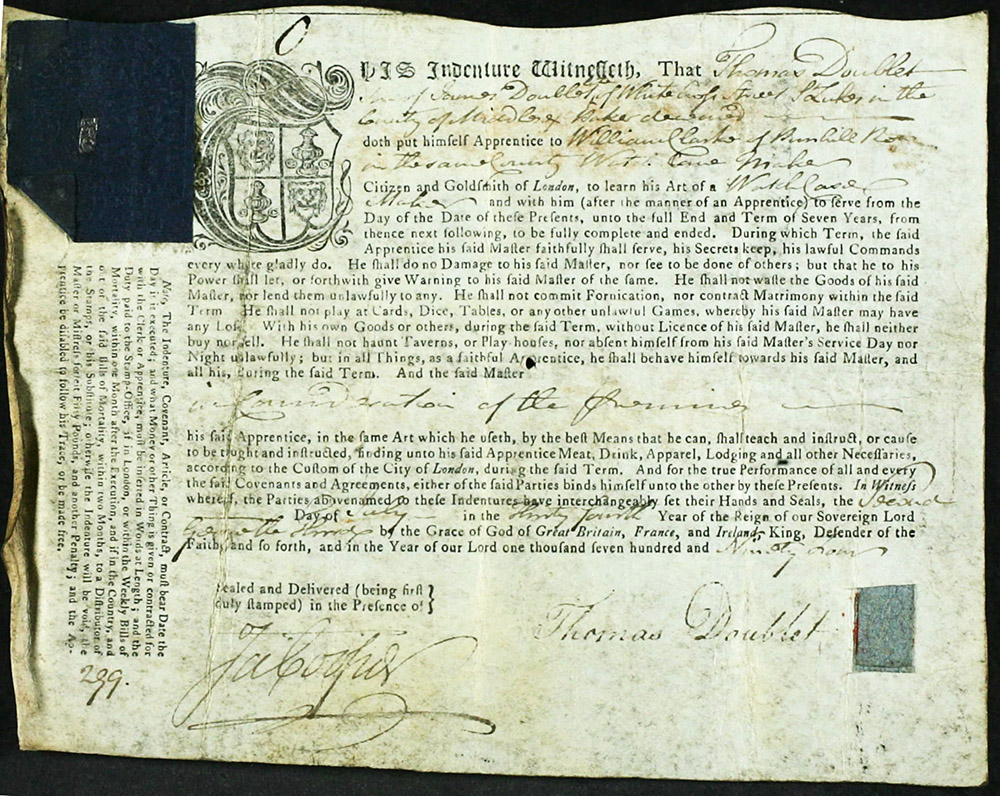 THIS Indenture Witnesseth, That Thomas Doublet
Son of James Doublet of White Cross Street St Lukes in the
County of Middlesex Baker deceased
doth put himself Apprentice to William Clarke of Bunhill Row
in the same County Watch Case Maker
Citizen and Goldſmith of London, to learn his Art of a Watch Case
Maker and with him (after the manner of an Apprentice) to ſerve from the
Day of the Date of theſe Preſents, unto the full End and Term of Seven Years, from
thence next following, to be fully complete and ended. During which Term, the ſaid
Apprentice his ſaid Maſter faithfully ſhall ſerve, his Secrets keep, his lawful Commands
every where gladly do. He ſhall do no Damage to his ſaid Maſter, nor ſee to be done of others; but that he to his
Power ſhall let, or forthwith give Warning to his ſaid Maſter of the ſame. He ſhall not waſte the Goods of his ſaid
Maſter, nor lend them unlawfully to any. He ſhall not commit Fornication, nor contract Matrimony within the ſaid
Term He ſhall not play at Cards, Dice, Tables, or any other unlawful Games, whereby his ſaid Maſter may have
any Loſs. With his own Goods or others, during the ſaid Term, without Licence of his ſaid Maſter, he ſhall neither
buy nor ſell. He ſhall not haunt Taverns, or Play-houſes, nor abſent himſelf from his ſaid Maſter's Service Day nor
Night unlawfully; but in all Things, as a faithful Apprentice, he ſhall behave himſelf towards his ſaid Maſter, and
all his, during the ſaid Term. And the ſaid Maſter
in Consideration of the Premises
his ſaid Apprentice, in the ſame Art which he uſeth, by the beſt Means that he can, ſhall teach and inſtruct, or cauſe
to be taught and inſtructed, finding unto his ſaid Apprentice Meat, Drink, Apparel, Lodging and all other Neceſſaries,
according to the Cuſtom of the City of London, during the ſaid Term. And for the true Performance of all and every
the ſaid Covenants and Agreements, either of the ſaid Parties binds himſelf unto the other by theſe Preſents. In Witneſs
whereof, the Parties abovenamed to theſe Indentures have interchangeably ſet their Hands and Seals, the Second
Day of July in the thirty fourth Year of the Reign of our Sovereign Lord
George the Third by the Grace of God of Great Britain, France, and Ireland, King, Defender of the
Faith, and ſo forth, and in the Year of our Lord one thouſand ſeven hundred and Ninety four
Sealed and Delivered (being firſt
duly ſtamped) in the Preſence of
Thomas Doublet
N. B. The Indenture, Covenant, Article, or Contract, muſt bear Date the
Day it is executed; and what Money or other Thing is given or contracted for
with the Clerk or Apprentice, muſt be inſerted in Words at Length; and the
Duty paid to the Stamp-Office, if in London, or within the Weekly Bills of
Mortality, within one Month after the Execution, and if in the Country, and
out of the ſaid Bills of Mortality, within two Months, to a Diſtributor of
the Stamps, or his Subſtitute; otherwiſe the Indenture will be void, the
Maſter or Miſtreſs forfeit Fifty Pounds, and another Penalty; and the Ap-
prentice be diſabled to follow his Trade, or be made free.
299.